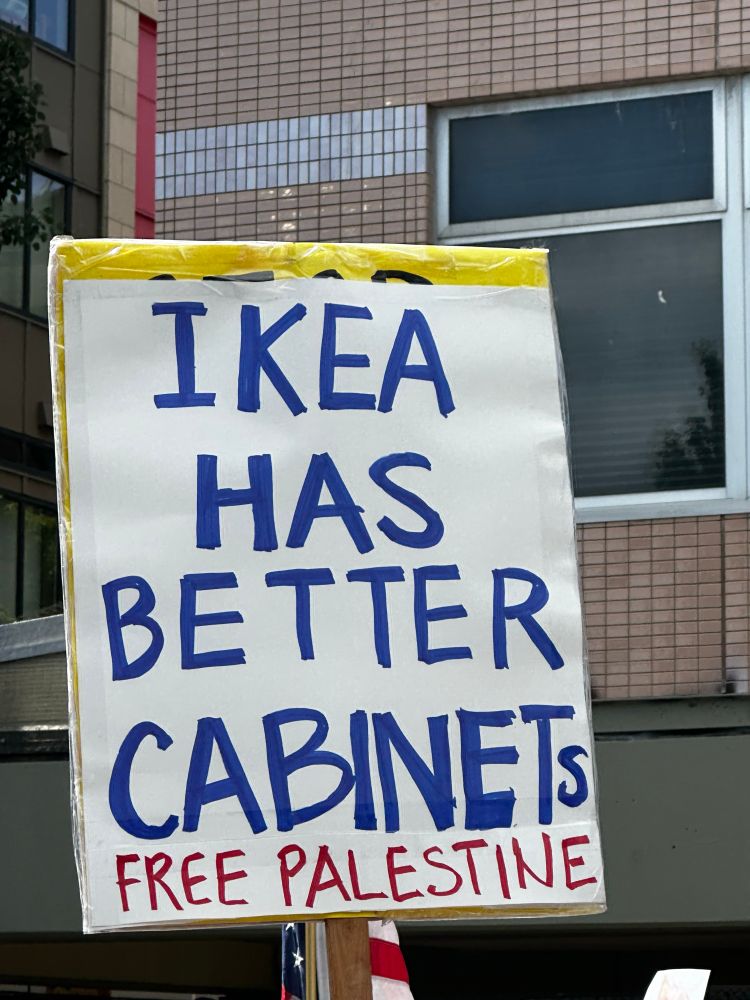 IKEA
HAS
BETTER
CABINETS
FREE PALESTINE